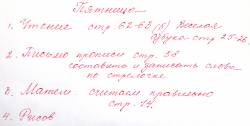 Пятница
1. Чтение стр. 62-63 (р) Веселая
Азбука стр 25-26.
2. Письмо прописи стр. 38
составить и записать слова
по стрелочке
3. Матем считаем правильно
стр. 14.
4. Рисов